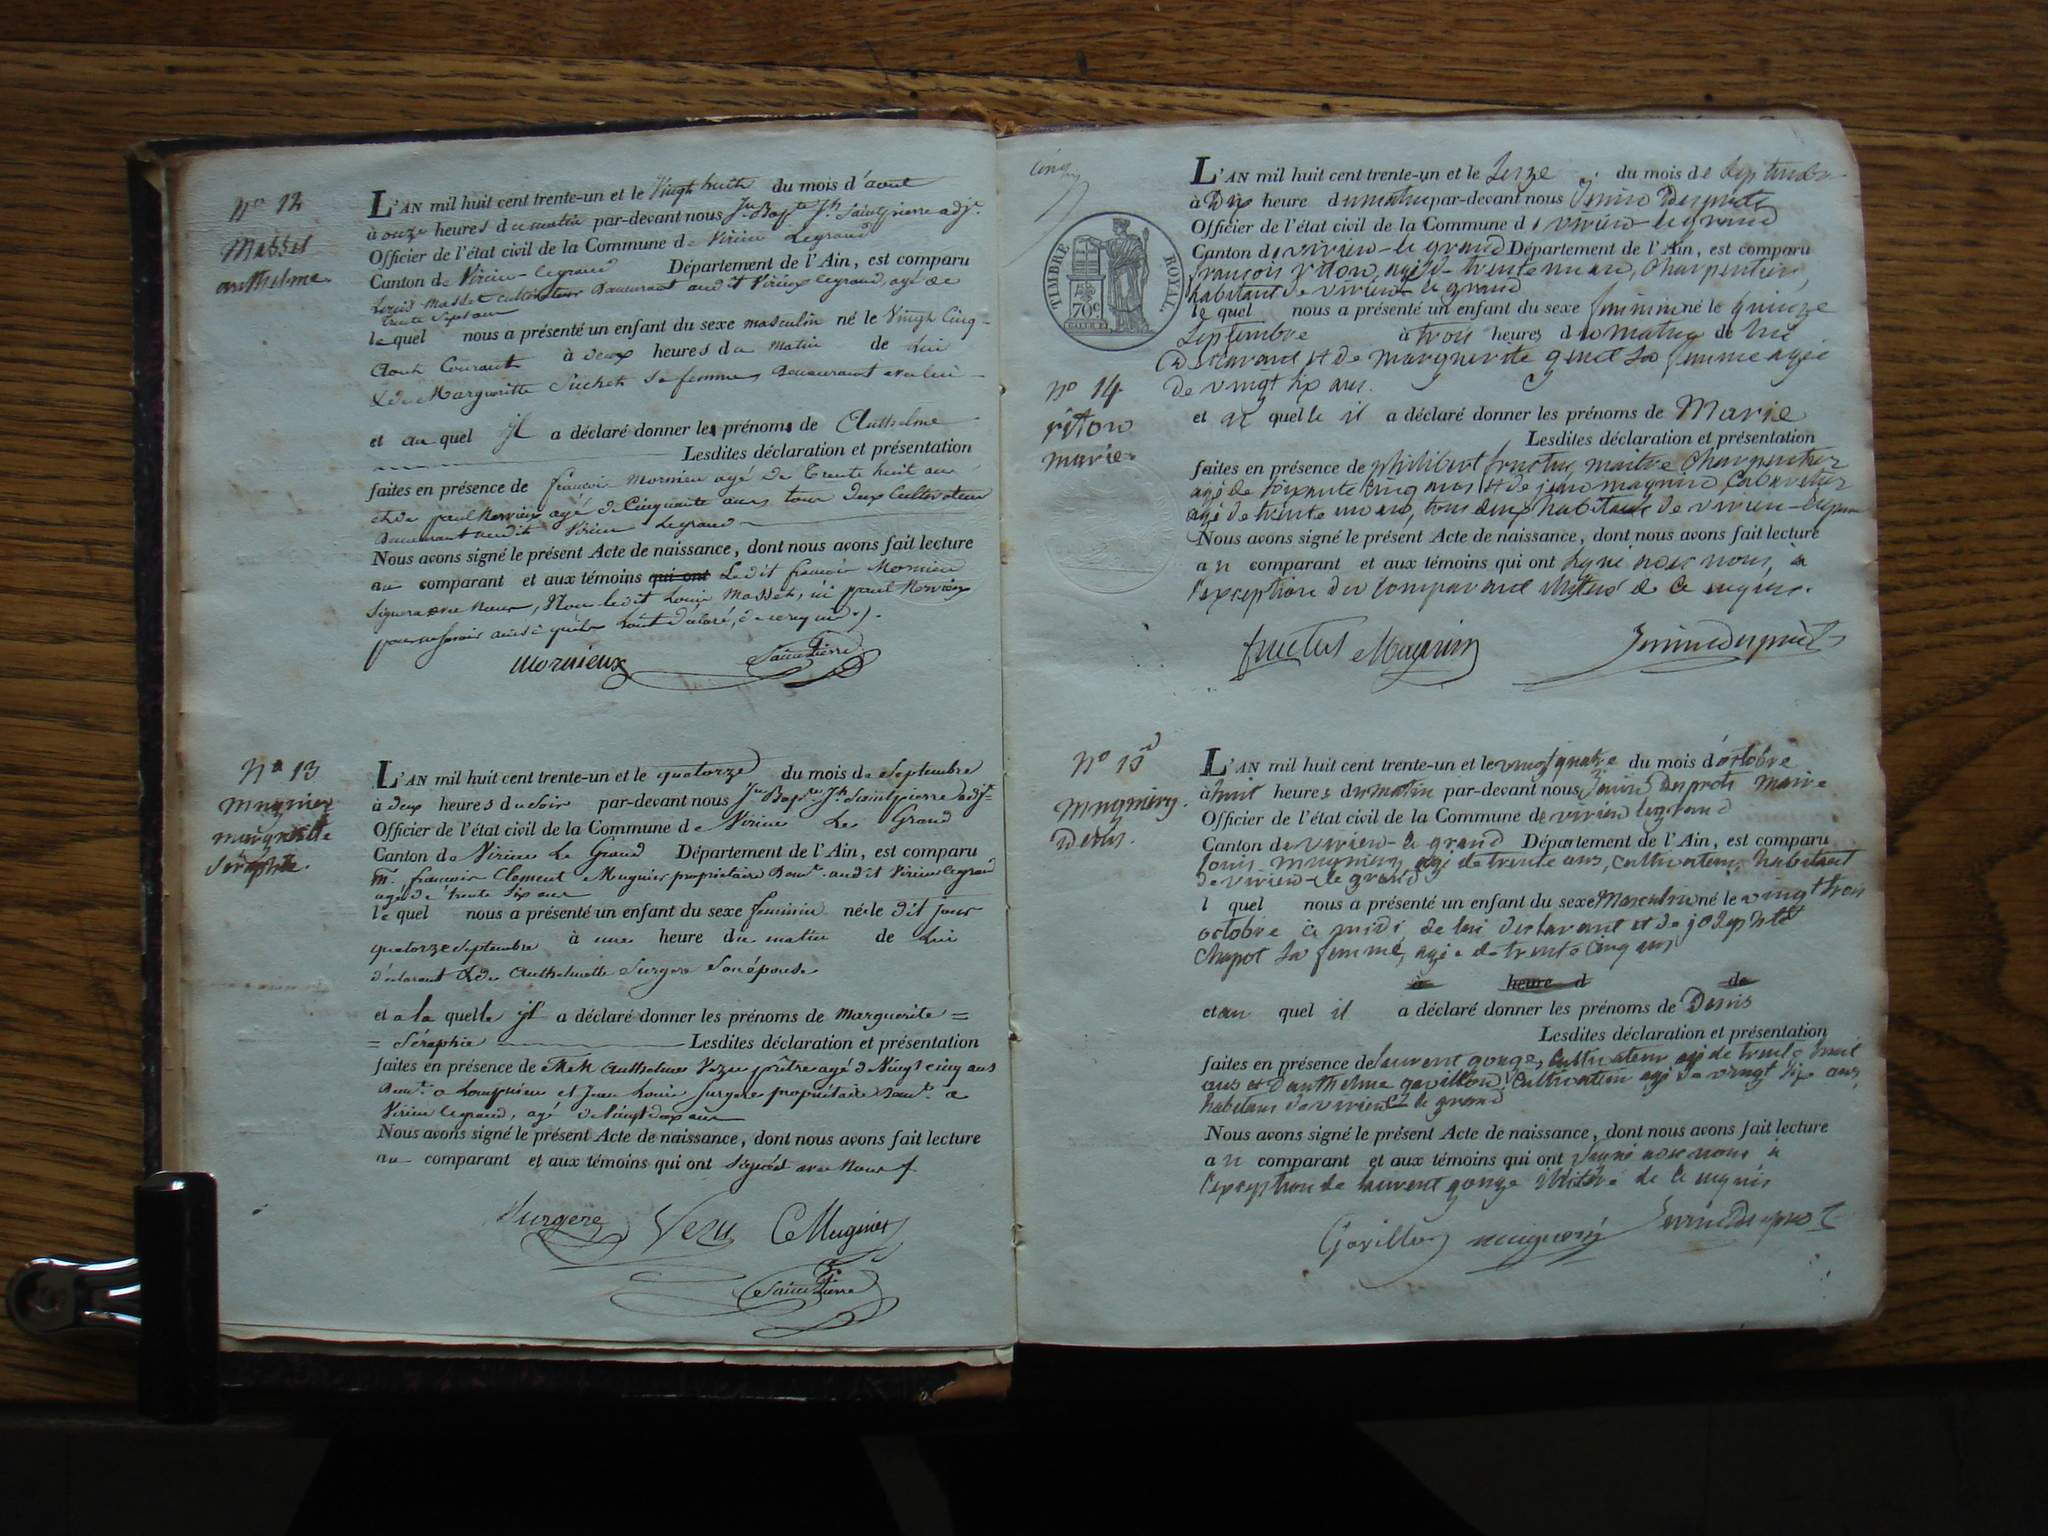 N° 12
Masset
anthelme
L'AN mil huit cent trente-un et le Vingt huit du mois d'aout
à onze heures du matin par-devant nous Jn Bapte Jh Saintpierre adjt.
Officier de l'état civil de la Commune de Virieu Legrand
Canton de Virieu-legrand Département de l'Ain, est comparu
Louis Masset cultivateur Demeurant audit Virieu legrand, agé de
trente Sept ans
le quel nous a présenté un enfant du sexe masculin né le Vingt Cinq
Aout Courant à deux heures du Matin de Lui
& de Margueritte Suchet Sa femme, Demeurant avec lui
et au quel Jl a déclaré donner les prénoms de Anthelme
Lesdites déclaration et présentation
faites en présence de françois Mornieu agé de Trente huit ans
et de paul agé de Cinquante ans, tous deux Cultivateurs
Demeurant audit Virieu Legrand
Nous avons signé le présent Acte de naissance, dont nous avons fait lecture
au comparant et aux témoins qui ont Ledit françois Mornieu
Signera avec Nous, Non ledit Louis Masset, ni paul
pour ne Savoir ainsi qu'ils l'ont déclaré, de ce requis
Mornieux SaintPierre
N° 13
Mugnier
margueritte
Séraphie.
L'AN mil huit cent trente-un et le quatorze du mois de Septembre
à deux heures du Soir par-devant nous Jn Bapte Jh Saintpierre adjt
Officier de l'état civil de la Commune de Virieu Le Grand
Canton de Virieu Le Grand Département de l'Ain, est comparu
Mr. françois Clement Mugnier propriétaire Demt. audit Virieu legrand
agé de trente Six ans
le quel nous a présenté un enfant du sexe feminin née le dit jour
quatorze Septembre à une heure du matin de Lui
déclarant & de Anthelmette Surgere Son épouse
et a la quelle Jl a déclaré donner les prénoms de Marguerite =
= Séraphie Lesdites déclaration et présentation
faites en présence de Anthelme Vezu prêtre agé de Vingt cinq ans
Demt. a et Jean Louis Surgere propriétaire Demt. a
Virieu legrand, agé de Vingt deux ans
Nous avons signé le présent Acte de naissance, dont nous avons fait lecture
au comparant et aux témoins qui ont Signés avec Nous
Surgere Vezu CMugnier
SaintPierre
cinq
TIMBRE ROYAL
70c
N° 14
riton
marie
L'AN mil huit cent trente-un et le Seize du mois de Septembre
à Dix heure du matin par-devant nous
Officier de l'état civil de la Commune de virieu-legrand
Canton de virieu-le grand Département de l'Ain, est comparu
françois riton, agé de trente un an, Charpentier,
habitant de virieu-le grand
le quel nous a présenté un enfant du sexe feminin né le quinze
Septembre à trois heures du matin de lui
Déclarant et de marguerite genet Sa femme agée
de vingt six ans.
et a quelle il a déclaré donner les prénoms de Marie
Lesdites déclaration et présentation
faites en présence de philibert fructus, maitre Charpentier
agé de soixante cinq ans et de jean magnin, Cabaretier
agé de trente un ans, tous deux habitans de virieu-
Nous avons signé le présent Acte de naissance, dont nous avons fait lecture
au comparant et aux témoins qui ont signé avec nous, à
l'exception du Comparant illiteré de ce enquis.
fructus Magnin
N° 15
Mugniery.
Denis.
L'AN mil huit cent trente-un et le vingt quatre du mois d'octobre
à huit heures du matin par-devant nous maire
Officier de l'état civil de la Commune de virieu legrand
Canton de virieu-le grand Département de l'Ain, est comparu
Louis mugniery agé de trente ans, cultivateur, habitant
de virieu-le grand
l quel nous a présenté un enfant du sexe Masculin né le vingt trois
octobre à midi de lui declarant et de josephte
Chapot Sa femme, agée de trente cinq ans
à heure d de
et au quel il a déclaré donner les prénoms de Denis
Lesdites déclaration et présentation
faites en présence de laurent gonge, Cultivateur agé de trente huit
ans et d'anthelme gavillon, Cultivateur agé de vingt six ans,
habitans de virieu le grand
Nous avons signé le présent Acte de naissance, dont nous avons fait lecture
au comparant et aux témoins qui ont signé avec nous à
l'exception de laurent gonge illiteré de ce enquis
Gavillon mugniery